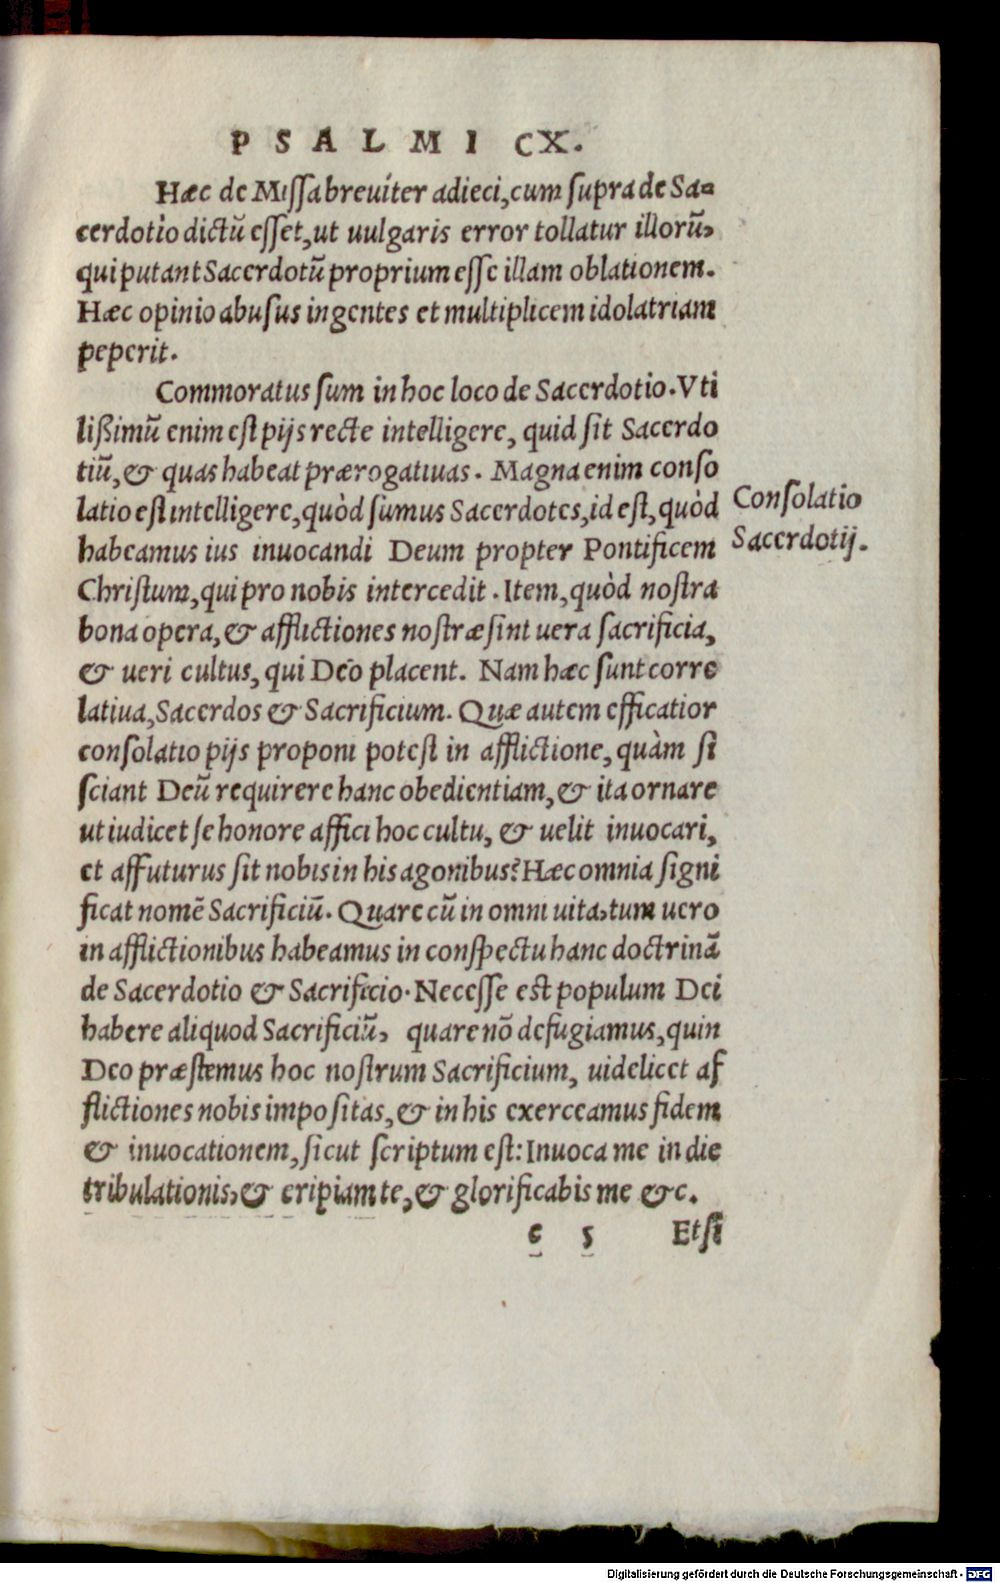 PSALMI CX.
Hæc de Missa breuiter adieci, cum supra de Sa=
cerdotio dictũ esset, ut uulgaris error tollatur illorũ,
qui putant Sacerdotũ proprium esse illam oblationem.
Hæc opinio abusus ingentes et multiplicem idolatriam
peperit.
Commoratus sum in hoc loco de Sacerdotio. Vti
lißimũ enim est pijs recte intelligere, quid sit Sacerdo
tiũ, & quas habeat prærogatiuas. Magna enim conso
latio est intelligere, quòd sumus Sacerdotes, id est, quòd
habeamus ius inuocandi Deum propter Pontificem
Christum, qui pro nobis intercedit. Item, quòd nostra
bona opera, & afflictiones nostræ sint uera sacrificia,
& ueri cultus, qui Deo placent. Nam hæc sunt corre
latiua, Sacerdos & Sacrificium. Quæ autem efficatior
consolatio pijs proponi potest in afflictione, quàm si
sciant Deũ requirere hanc obedientiam, & ita ornare
ut iudicet se honore affici hoc cultu, & uelit inuocari,
et affuturus sit nobis in his agonibus? Hæc omnia signi
ficat nomẽ Sacrificiũ. Quare cũ in omni uita, tum uero
in afflictionibus habeamus in conspectu hanc doctrinã
de Sacerdotio & Sacrificio. Necesse est populum Dei
habere aliquod Sacrificiũ, quare nõ defugiamus, quin
Deo præstemus hoc nostrum Sacrificium, uidelicet af
flictiones nobis impositas, & in his exerceamus fidem
& inuocationem, sicut scriptum est: Inuoca me in die
tribulationis, & eripiam te, & glorificabis me &c.
c 5 Etsi
Consolatio
Sacerdotij.
Digitalisierung gefördert durch die Deutsche Forschungsgemeinschaft - DFG